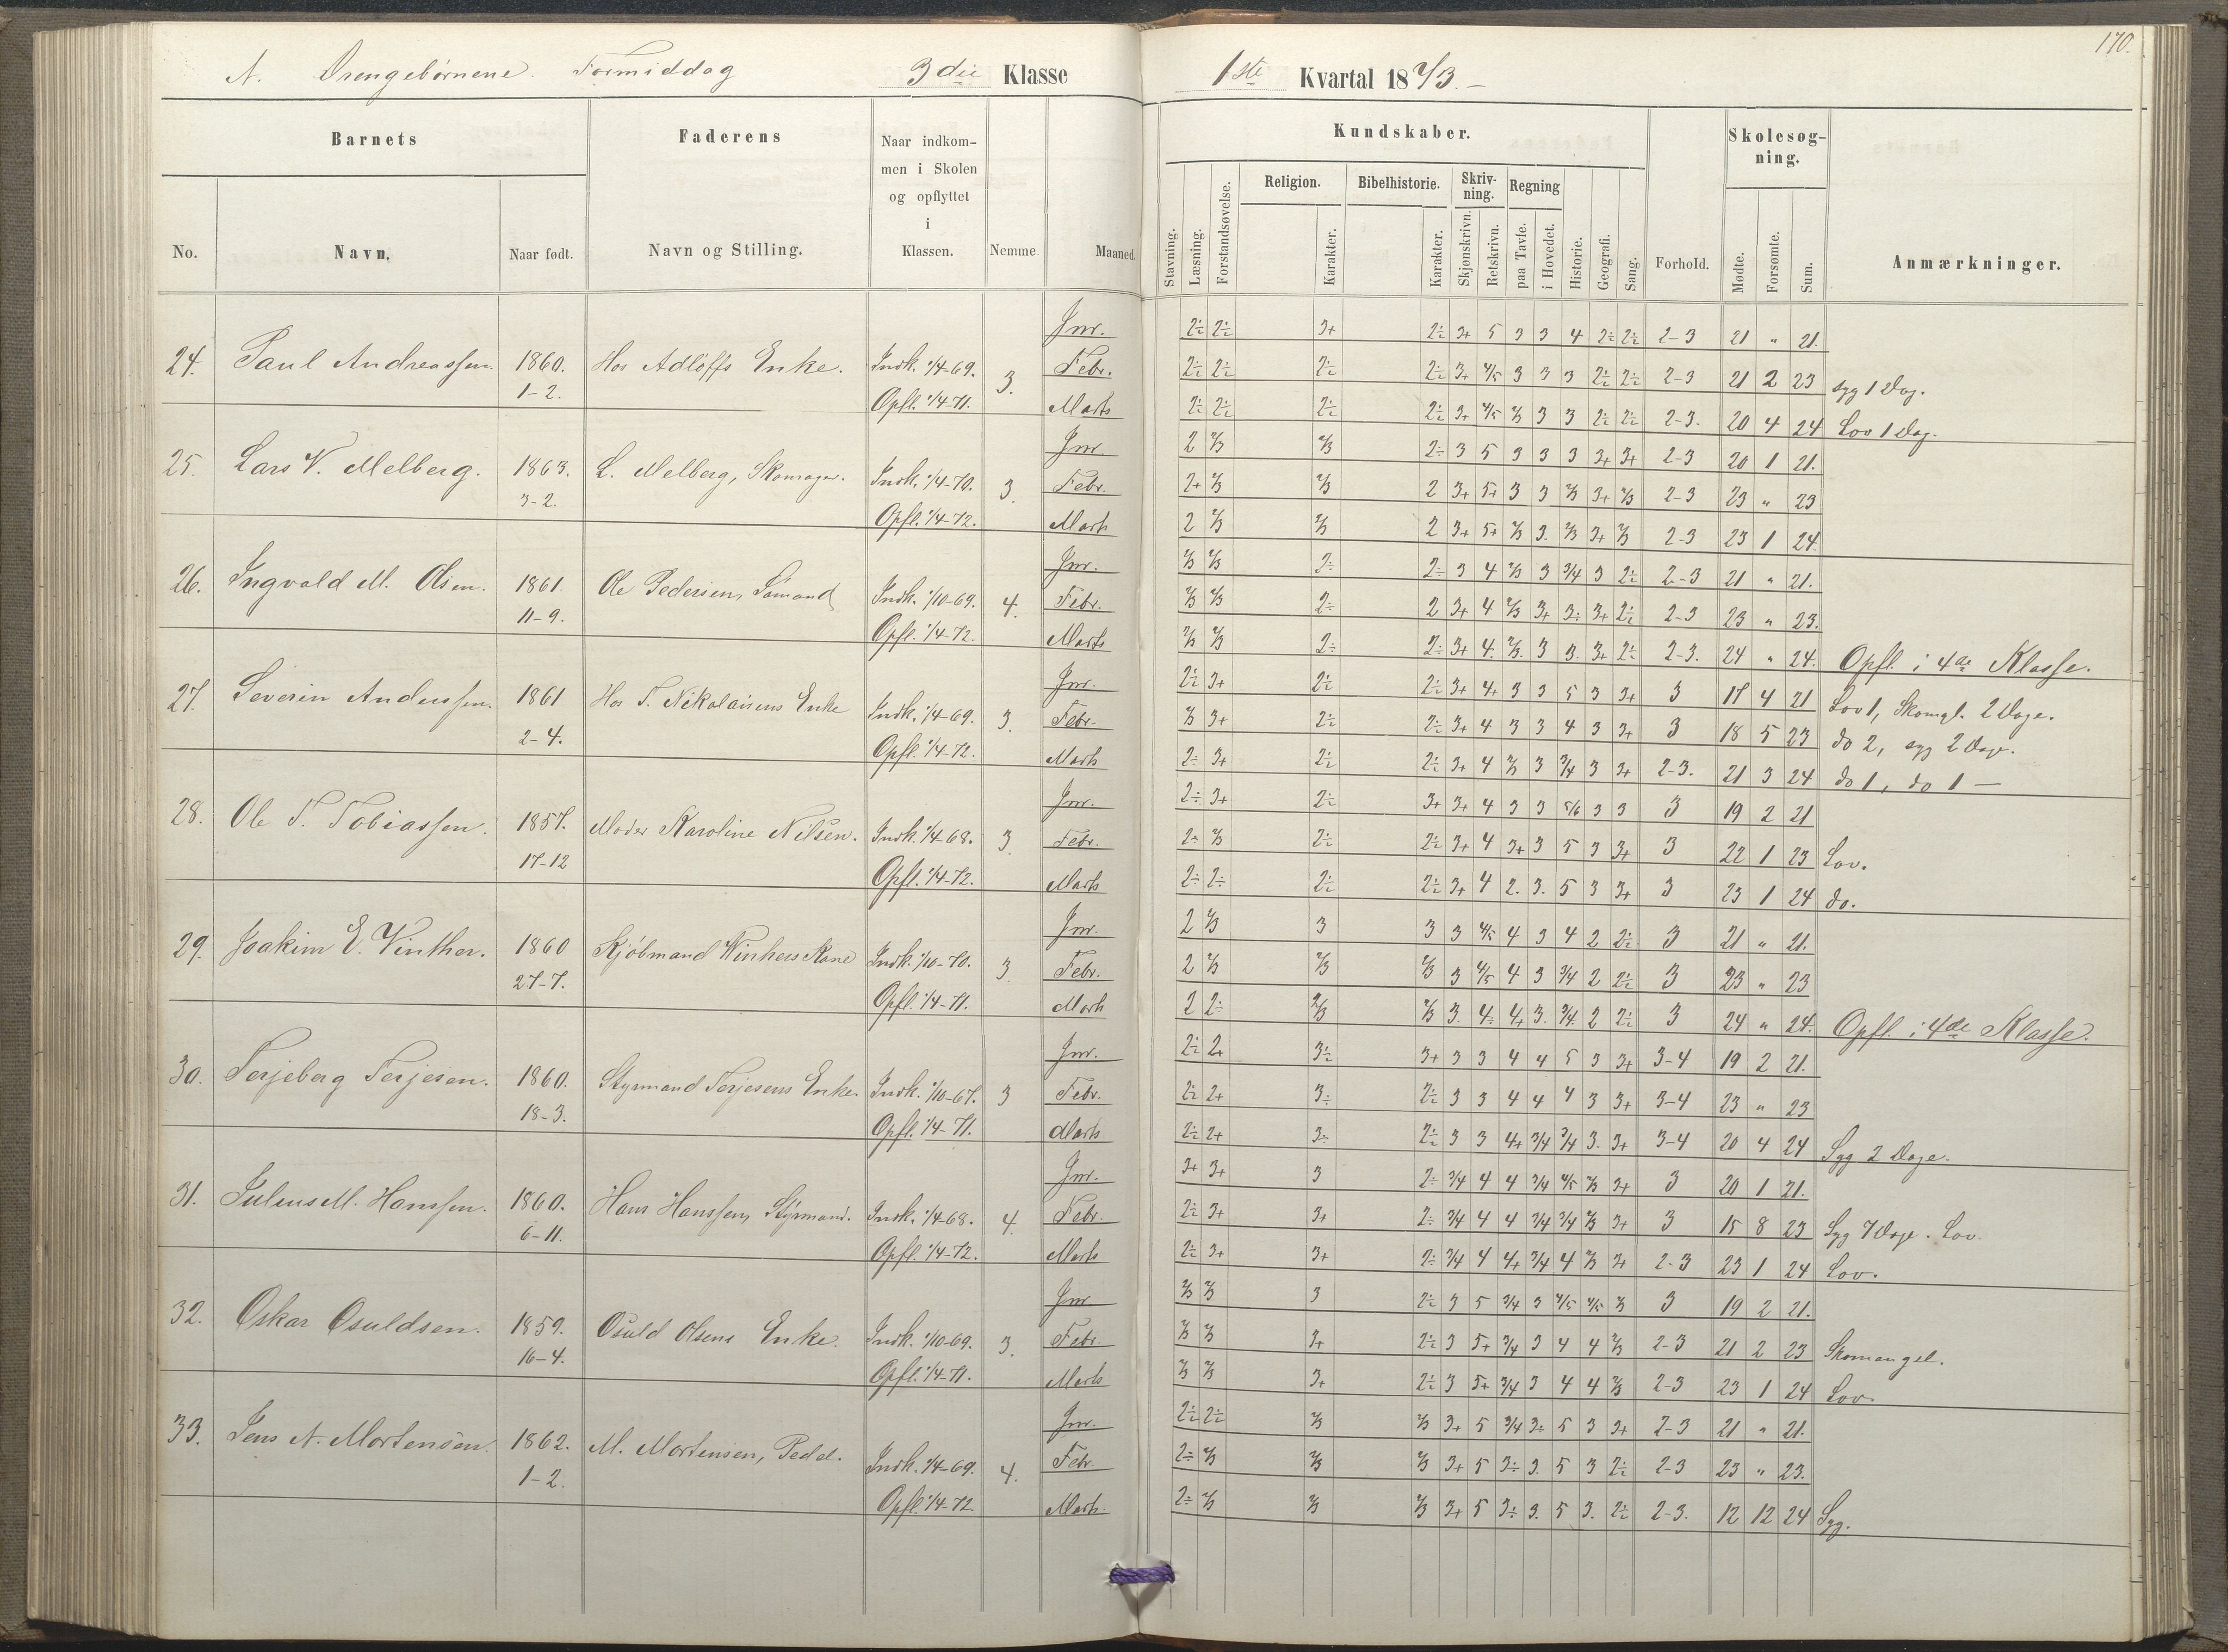 170.
A. Drengebørnene. Formiddag 3die Klasse 1ste Kvartal 1873.-
Barnets Faderens Naar indkommen i Skolen og opflyttet i Klassen. Nemme. Maaned. Kundskaber. Forhold. Skolesøgning. Anmærkninger.
No. Navn. Naar født. Navn og Stilling. Stavning. Læsning. Forstandsøvelse. Religion. Karakter. Bibelhistorie. Karakter. Skrivning. Skjønskrivn. Retskrivn. Regning paa Tavle. i Hovedet. Historie. Geografi. Sang. Mødte. Forsømte. Sum.
Jnr. 2÷ 2÷ 3+ 2÷ 3+ 5 3 3 4 2÷ 2÷ 2-3 21 " 21.
24. Paul Andreassen. 1860. Hos Adloffs Enke. Indk. 1/4-69. 3. Febr. 2÷ 2÷ 2÷ 2÷ 3+ 4/5 3 3 3 2÷ 2÷ 2-3 21 2 23 syg 1 Dag.
1-2. Opfl. 1/4-71. Marts 2÷ 2÷ 2÷ 2÷ 3+ 4/5 2/3 3 3 2÷ 2÷ 2-3. 20 4 24 Lov 1 Dag.
Jnr. 2 2/3 2/3 2÷ 3 5 3 3 3 3+ 3+ 2-3 20 1 21.
25. Lars V. Melberg. 1863. L. Melberg, Skomager. Indk. 1/4-70. 3. Febr. 2+ 2/3 2/3 2 3+ 5+ 3 3 2/3 3+ 2/3 2-3 23 " 23
3-2. Opfl. 1/4-72. Marts 2 2/3 2/3 2 3+ 5+ 2/3 3. 2/3 3+ 2/3 2-3 23 1 24.
Jnr. 2/3 2/3 2÷ 2÷ 3 4 2/3 3 3/4 3 2÷ 2-3 21 " 21.
26. Ingvald M. Olsen. 1861. Ole Pedersen, Sømand Indk. 1/10-69. 4. Febr. 2/3 2/3 2÷ 2 3+ 4 2/3 3+ 3÷ 3+ 2÷ 2-3 23 " 23.
11-9. Opfl. 1/4-72. Marts 2/3 2/3 2÷ 2÷ 3+ 4. 2/3. 3 3. 3+ 2÷ 2-3. 24 " 24. Opfl. i 4de Klasse.
Jnr. 2÷ 3+ 2÷ 2÷ 3+ 4+ 3 3 5 3 3+ 3 17 4 21 Lov 1, Skomgl. 2 Dage.
27. Severin Anderssen. 1861 Hos T. Nikolaisens Enke Indk. 1/4-69. 3. Febr. 2/3 3+ 2÷ 2÷ 3+ 4 3 3 4 3 3+ 3 18 5 23 do 2, syg 2 Dage.
2-4. Opfl. 1/4-72. Marts 2÷ 3+ 2÷ 2÷ 3+ 4 2/3 3 3/4 3 3+ 2-3. 21 3 24 do 1, do 1 —
Jnr. 2÷ 3+ 2÷ 3+ 3+ 4 3 3 5/6 3 3 3 19 2 21
28. Ole T. Tobiassen. 1857. Moder Karoline Nilsen. Indk. 1/4-68. 3 Febr. 2÷ 2/3 2÷ 2÷ 3+ 4 3+ 3 5 3 3+ 3 22 1 23 Lov.
17-12 Opfl. 1/4-72. Marts 2÷ 2÷ 2÷ 2÷ 3+ 4 2. 3. 5 3 3+ 3 23 1 24 do.
Jnr. 2 2/3 3 3 3 4/5 4 3 4 2 2÷ 3 21 " 21.
29. Joakim E. Vinther. 1860 Kjøbmand Winthers Kone Indk. 1/10-70. 3 Febr. 2 2/3 2/3 2/3 3 4/5 4 3 3/4 2 2÷ 3 23 " 23
27-7. Opfl. 1/4-71. Marts 2 2÷ 2/3 2/3 3. 4÷ 4+ 3. 3/4. 2 2÷ 3 24 " 24. Opfl. i 4de Klasse.
Jnr. 2÷ 2+ 3÷ 3+ 3 3 4 4 5 3 3+ 3-4 19 2 21.
30. Terjeberg Terjesen. 1860. Styrmand Terjesens Enke. Indk. 1/10-67. 3 Febr. 2÷ 2+ 3÷ 2÷ 3 3 4 4 4 3 3+ 3-4 23 " 23
18-3. Opfl. 1/4-71. Marts 2÷ 2+ 3÷ 2÷ 3 3 4+ 3/4 3/4 3. 3+ 3-4 20 4 24 Syg 2 Dage.
Jnr. 3+ 3+ 3 2÷ 3/4 4 4 3/4 4/5 2/3 3+ 3 20 1 21.
31. Julius M. Hanssen. 1860. Hans Hanssen, Styrmand. Indk. 1/4-68. 4. Febr. 2÷ 3+ 3+ 2÷ 3/4 4 4 3/4 3/4 2/3 3+ 3 15 8 23 Syg 7 Dage. Lov.
6-11. Opfl. 1/4-72. Marts 2÷ 3+ 3+ 2÷ 3/4 4 4+ 3/4 4 2/3 3+ 2-3 23 1 24 Lov.
Jnr. 2/3 2/3 3 2÷ 3 5 3/4 3 4/5 4/5 2/3 3 19 2 21.
32. Oskar Osuldsen. 1859. Osuld Olsens Enke. Indk. 1/10-69. 3. Febr. 2/3 2/3 3+ 2÷ 3 5+ 3/4 3 4 4 2/3 2-3 21 2 23 Skomangel.
16-4. Opfl. 1/4-71. Marts 2/3 2/3 3+ 2÷ 3 5+ 3/4 3 4 4 2/3 2-3 23 1 24 Lov.
Jnr. 2÷ 2÷ 2/3 2/3 3+ 5 3/4 3÷ 5 3 3+ 2-3 21 " 21.
33. Jens N. Mortensen. 1862. M. Mortensen, Pedel. Indk. 1/4-69. 4. Febr. 2÷ 2/3 2/3 2/3 3+ 5 3÷ 3. 5 3 2÷ 2-3 23 " 23.
1-2. Opfl. 1/4-72 Marts. 2÷ 2/3 2/3 2/3 3+ 5 3÷ 3. 5 3. 2÷ 2-3. 12 12 24 Syg.